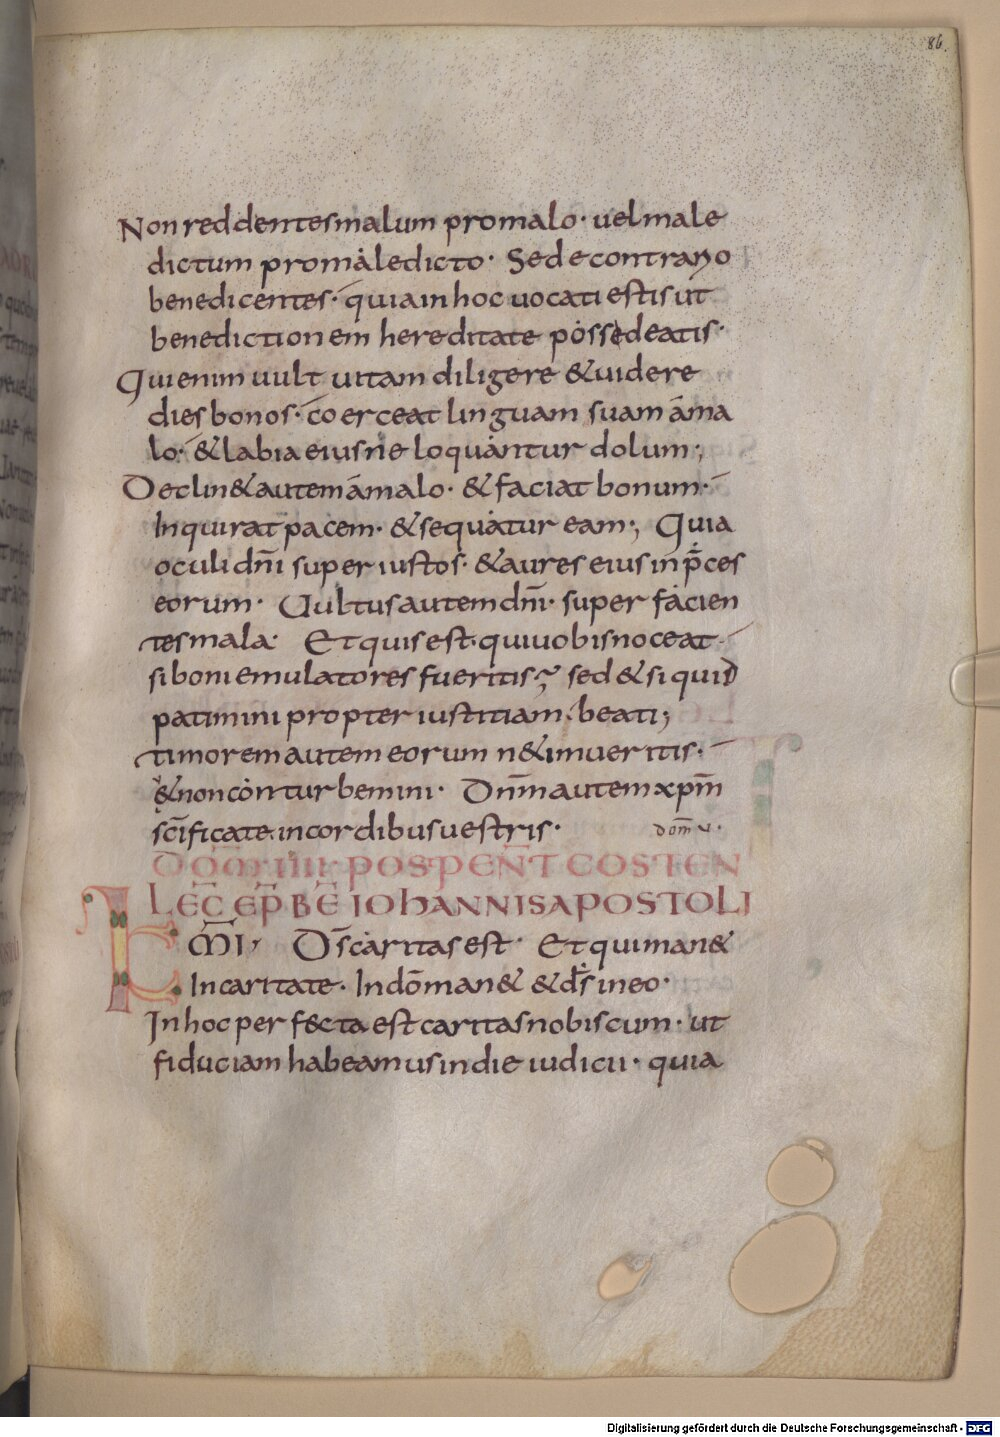 86.
Non reddentes malum pro malo· uel male
dictum pro maledicto· Sed econtrario
benedicentes· quia in hoc uocati estis ut
benedictionem hereditate possedeatis·
Qui enim uult uitam diligere & uidere
dies bonos· coerceat linguam suam ama
lo· & labia eius ne loquantur dolum;
Declin& autem amalo· & faciat bonum·
Inquirat pacem· & sequatur eam; Quia
oculi dn̄i super iustos· & aures eius in p̄ces
eorum· Uultus autem dn̄i· super facien
tes mala· Et quis est· qui uobis noceat·
si boni emulatores fueritis; sed & si quid
patimini propter iustitiam· beati;
timorem autem eorum n& imueritis·
& non conturbemini· Dn̄m autem xp̄m
sc̄ificate· in cordibus uestris·
dom̄ u·
DOM̄ IIII· POS· PEN̄TCOSTEN
LEC̄ EP̄ BĒ IOHANNIS APOSTOLI
KM̄I· Ds̄ caritas est· Et qui man&
In caritate· In dō man& & ds̄ in eo·
In hoc perfecta est caritas nobiscum· ut
fiduciam habeamus in die iudicii· quia
Digitalisierung gefördert durch die Deutsche Forschungsgemeinschaft - DFG